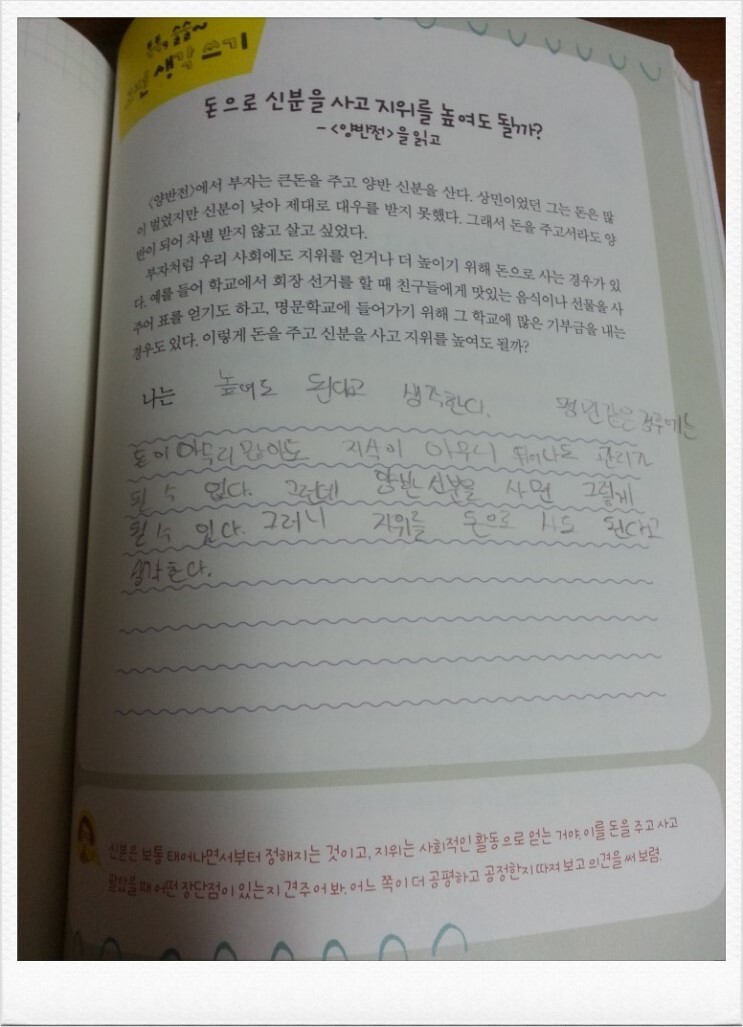 생각 쓰기
돈으로 신분을 사고 지위를 높여도 될까?
- <양반전>을 읽고
<양반전>에서 부자는 큰돈을 주고 양반 신분을 산다. 상민이었던 그는 돈은 많
이 벌었지만 신분이 낮아 제대로 대우를 받지 못했다. 그래서 돈을 주고서라도 양
반이 되어 차별 받지 않고 살고 싶었다.
부자처럼 우리 사회에도 지위를 얻거나 더 높이기 위해 돈으로 사는 경우가 있
다. 예를 들어 학교에서 회장 선거를 할 때 친구들에게 맛있는 음식이나 선물을 사
주어 표를 얻기도 하고, 명문학교에 들어가기 위해 그 학교에 많은 기부금을 내는
경우도 있다. 이렇게 돈을 주고 신분을 사고 지위를 높여도 될까?
나는 높여도 된다고 생각한다. 평민같은 경우에는
돈이 아무리 많아도 지식이 아무리 뛰어나도 관리가
될 수 없다. 그런데 양반 신분을 사면 그렇게
될 수 있다. 그러니 지위를 돈으로 사도 된다고
생각한다.
신분은 보통 태어나면서부터 정해지는 것이고, 지위는 사회적인 활동으로 얻는 거야. 이를 돈을 주고 사고
팔았을 때 어떤 장단점이 있는지 견주어 봐. 어느 쪽이 더 공평하고 공정한지 따져 보고 의견을 써 보렴.